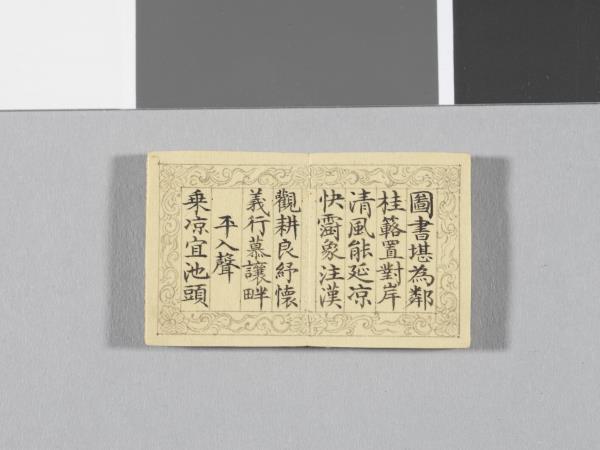 圖書堪為鄰
桂簵置對岸
清風能延凉
快霌象注漢
觀耕良紓懷
義行慕讓畔
平入聲
乘凉宜池頭